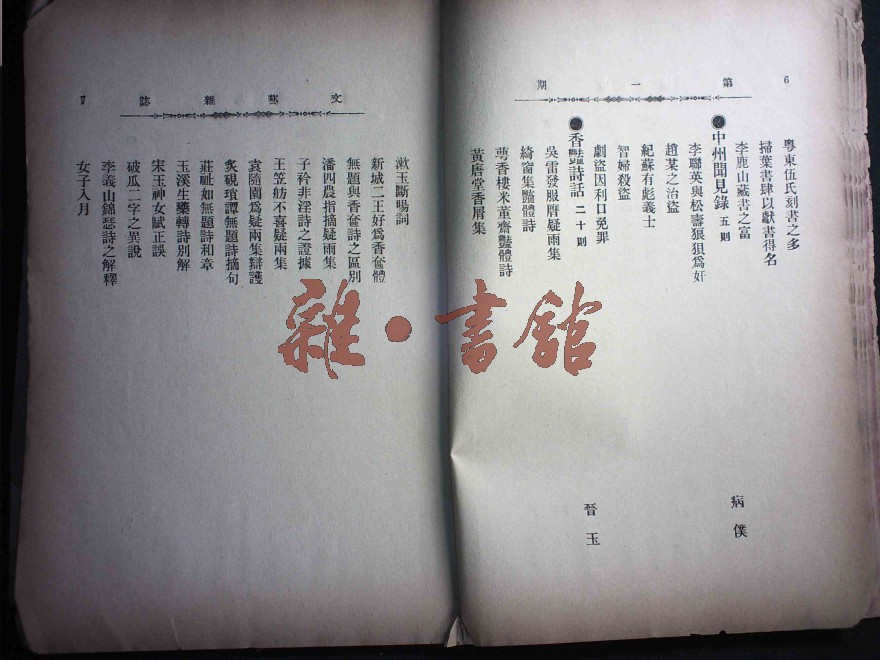 6
第一期
粵東伍氏刻書之多
掃葉書肆以獻書得名
李鹿山藏書之富
中州聞見錄 五則 病僕
李聯英與松壽狼狽爲奸
趙某之治盜
紀蘇有彪義士
智婦殺盜
劇盜因利口免罪
香豔詩話 二十則 晉玉
吳雷發服膺疑雨集
綺窗集豔體詩
萼香樓米董齋豔體詩
黃唐堂香屑集
文藝雜誌
7
漱玉斷腸詞
新城二王好爲香奩體
無題與香奩詩之區別
潘四農指摘疑雨集
子衿非淫詩之證據
王笠舫不喜疑雨集
袁隨園爲疑雨集辯護
炙硯瑣譚無題詩摘句
莊祉如無題詩和章
玉溪生藥轉詩別解
宋玉神女賦正誤
破瓜二字之異說
李義山錦瑟詩之解釋
女子入月
雜·書館